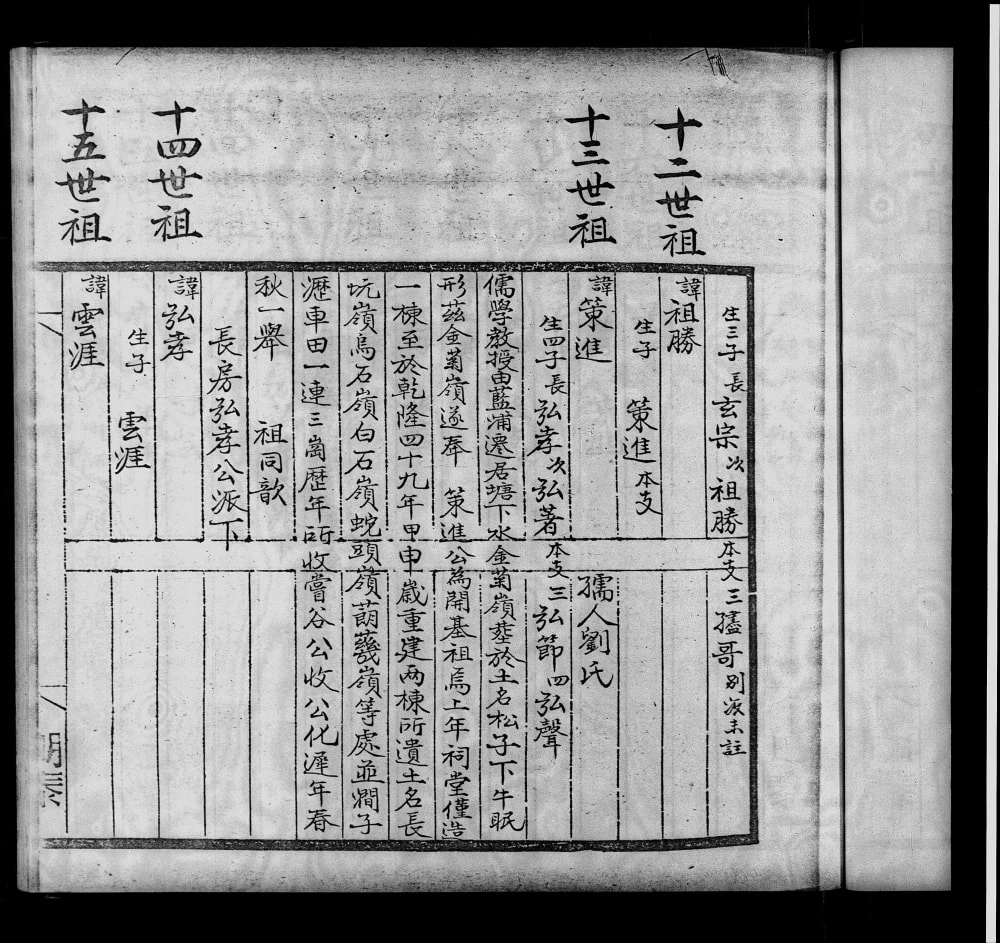 生三子長玄宗次祖勝本支三孻哥別派未註
十二世祖
諱祖勝
生子 策進本支
十三世祖
諱策進 孺人劉氏
生四子長弘孝次弘著本支三弘節四弘聲
儒學教授由藍浦遷居塘下水金菊嶺塟於土名松子下牛眠
形茲金菊嶺遂奉 策進公為開基祖焉上年祠堂僅造
一棟至於乾隆四十九年甲申歲重建两棟所遺土名長
坑嶺烏石嶺白石嶺蛇頭嶺萠嶺等處並澗子
瀝車田一連三崗歷年所收嘗谷公收公化遞年春
秋一舉 祖同歆
長房弘孝公派下
十四世祖
諱弘孝
生子 雲涯
十五世祖
諱雲涯